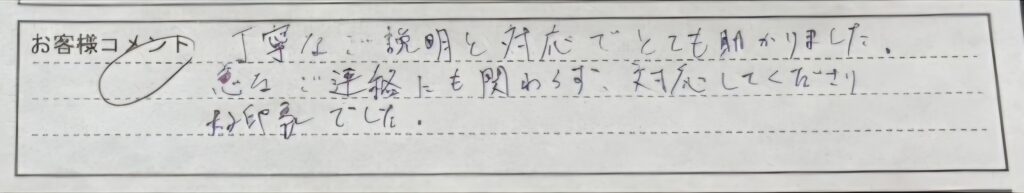 お客様コメント 丁寧なご説明と対応でとても助かりました。
急なご連絡にも関わらず、対応してくださり
好印象でした。